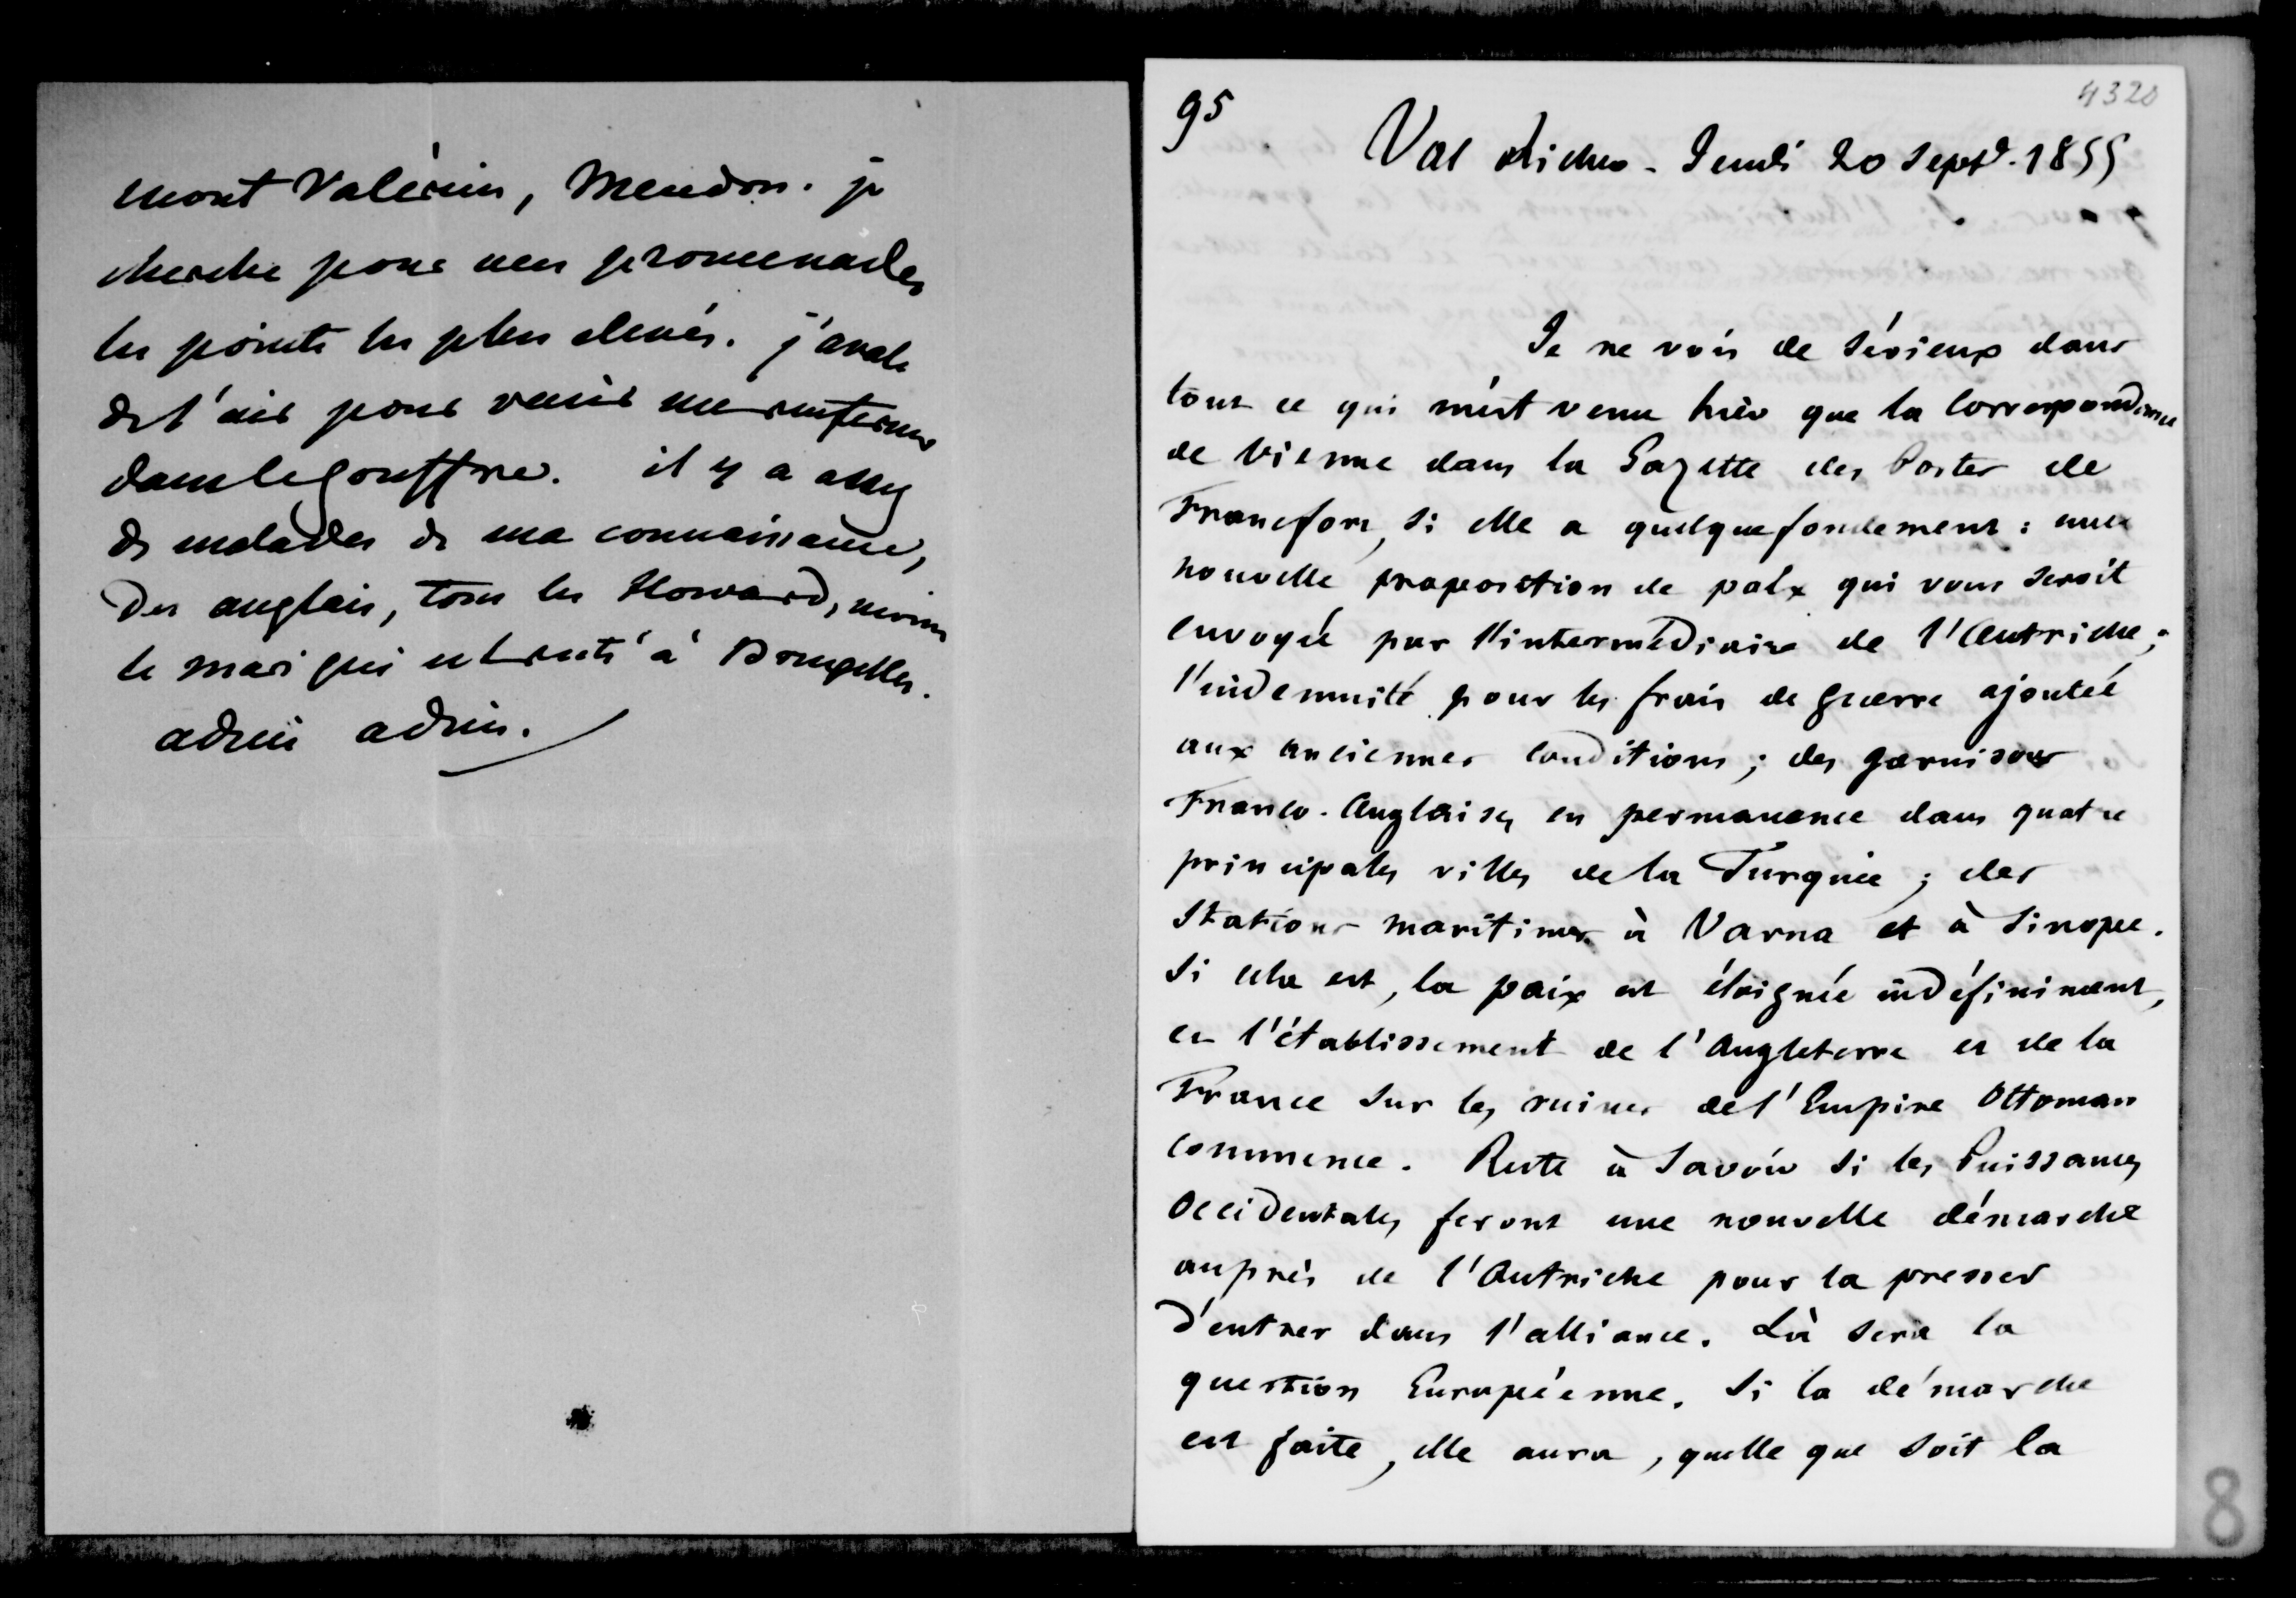 mont Valérien, Meudon. je
cherche pour mes promenades
les points les plus elevés. j'avale
de l'air pour venir me renfermer
dans le gouffre. il y a assez
de malades de ma connaissance,
des anglais, tous les Howard, moins
le mari qui est resté à Bruxelles.
adieu adieu.
95
4320
Val Richer - Jeudi 20 Septb. 1855
Je ne vois de sérieux dans
tout ce qui m'est venu hier que la correspondance
de Vienne dans la Gazette des Postes de
Francfort, si elle a quelque fondement : une
nouvelle proposition de paix qui vous seroit
envoyée par l'intermédiaire de l'Autriche ;
l'indemnité pour les frais de guerre ajoutée
aux anciennes conditions ; des garnisons
Franco-Anglaises en permanence dans quatre
principales villes de la Turquie ; des
Stations maritimes à Varna et à Sinope.
Si cela est, la paix est éloignée indéfiniment,
et l'établissement de l'Angleterre et de la
France sur les ruines de l'Empire Ottoman
commence. Reste à savoir si les Puissances
Occidentales feront une nouvelle démarche
auprès de l'Autriche pour la presser
d'entrer dans l'alliance. Là sera la
question Européenne. Si la démarche
est faite, elle aura, quelle que soit la
8